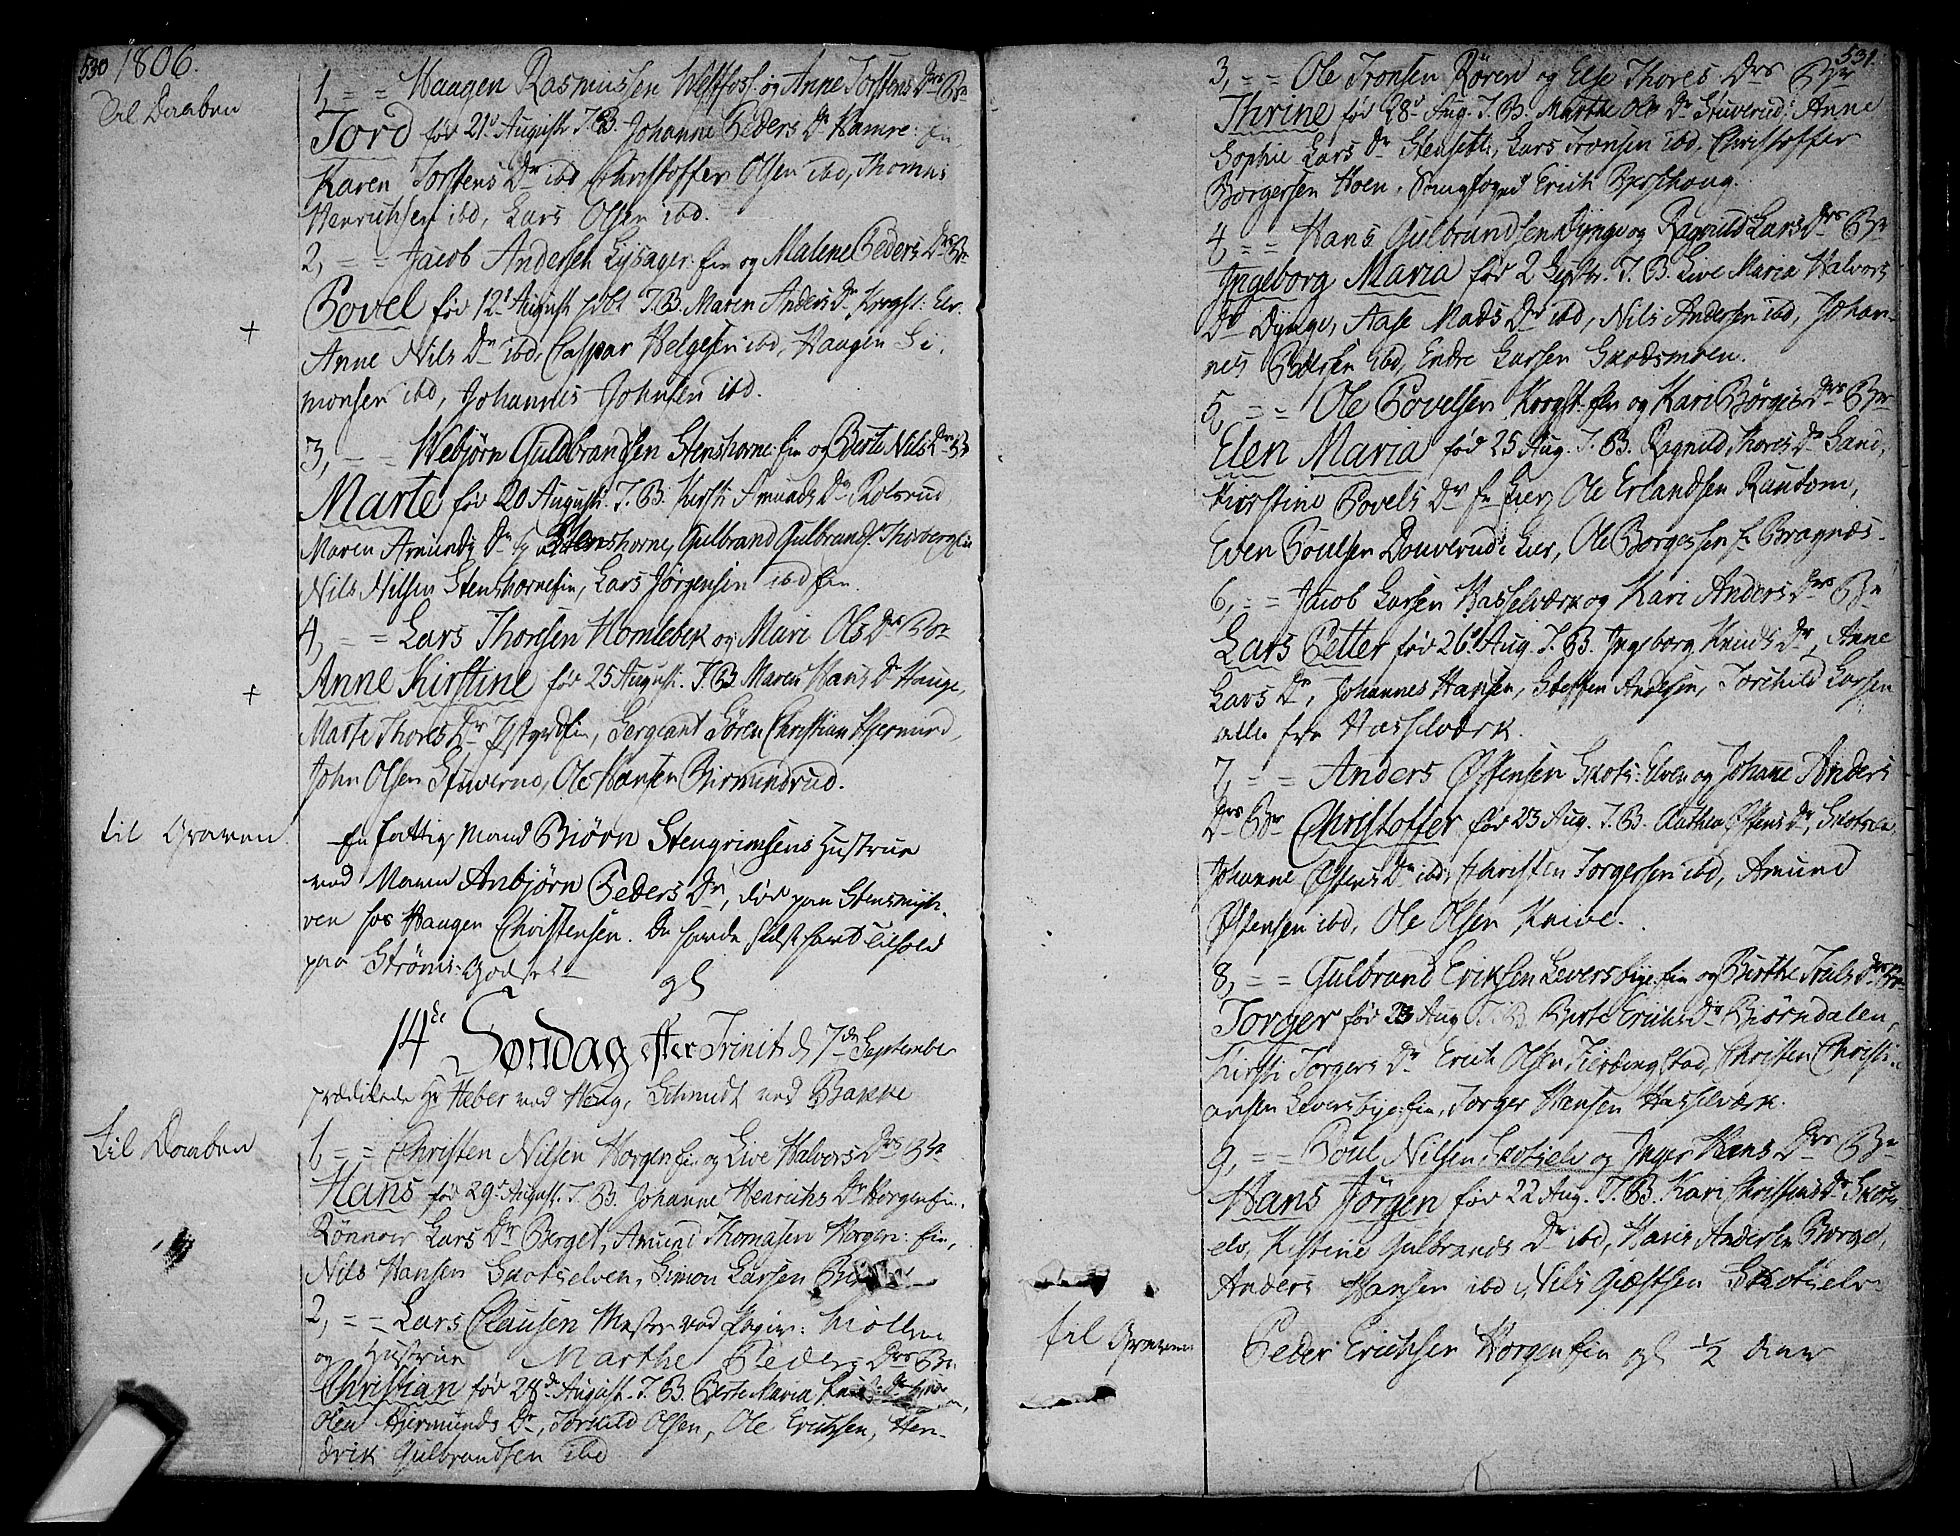 530 1806.
Til Daaben
1, = = Haagen Rasmussen Westfos: og Anne Torstens Drs Br
Tord fød 21de August T. B. Johanne Peders Dr Hamre:
Karen Torstens Dr ibd Christoffer Olsen ibd, Thomas
Henrichsen ibd, Lars Olsen ibd.
2, = = Jacob Andersen Lysager: ein og Malene Peders Drs Br
Povel fød 12te August T. B. Maren Anders Dr
Anne Nils Dr ibd, Caspar Helgesen ibd, Haagen Si-
monsen ibd, Johannis Johnsen ibd.
3, = = Webjørn Guldbrandsen Stenshorne: ein og Berte Nils Drs B
Marte fød 20 August: T. B. Kirsti Amunds Dr Kolsrud
Maren Amunds Dr Stenshorne, Gulbrand Gulbrands:
Nils Nilsen Stenshorne ein, Lars Jørgensen ibd ein
4, = = Lars Thorsen Homlebek og Mari Ols Drs Br
Anne Kirstine fød 25 August: T. B. Maren Hans Dr Hauge,
Marte Thores Dr ein, Sergeant Søren Christian
John Olsen Stuverud, Ole Hansen Birmundrud.
til Graven
En fattig Mand Biørn Stengrimsens Hustrue
ved Navn Anbjørn Peders Dr, død paa
ven hos Haagen Christensen. De havde sidst havt Tilhold
paa Strøms-Godset
gl
14de Søndag efter Trinit d 7de September
prædikede Hr Heber ved Haug, Schmidt ved Bakke
til Daaben
1, = = Christen Nilsen Horgen ein og Live Halvors Drs Br
Hans fød 29de August. T. B. Johanne Henrichs Dr Horgen ein.
Rønnow Lars Dr Berget, Amund Thomasen Horgen: ein,
Nils Hansen Skotselven, Simon Larsen
2, = = Lars Clausen Mester ved Papir: Møllen
og Hustrue Marthe Peders Drs Br
Christian fød 28de August. T. B. Berte Maria
Olea Hiermunds Dr, Torkild Olsen, Ole Erichsen, Hen-
drik Gulbrandsen ibd
531.
3, = = Ole Tronsen Røren og Else Thores Drs Br
Thrine fød 28de Aug. T. B. Marthe Ols Dr Stuverud: Anne
Sophie Lars Dr Stensett, Lars Tronsen ibd, Christoffer
Borgersen Hoen, Erich
4, = = Hans Gulbrandsen Dynge og Ragnild Lars Drs Br
Ingeborg Maria fød 2 Septbr. T. B. Live Maria Halvors
Dr Dynge, Aase Mads Dr ibd, Nils Andersen ibd, Johan-
nes Pedersen ibd, Endre Larsen Skodsmoen.
5, = = Ole Povelsen ein og Kari Børges Drs Br
Elen Maria fød 25 Aug. T. B. Ragnild Thores Dr
Kirstine Povels Dr fr Lier, Ole Erlandsen
Even Poulsen Lier, Ole Borgersen fr Bragnæs.
6, = = Jacob Larsen Hasselværk og Kari Anders Drs Br
Lars Petter fød 26de Aug. T. B. Ingeborg Knuds Dr, Anne
Lars Dr, Johannes Hansen, Steffen Andersen, Torchild Larsen
alle fra Hasselværk.
7 = = Anders Østensen Skots: elven og Johanne Anders
Drs Br Christoffer fød 23 Aug. T. B. Østens Dr, Skotselv
Johanne Østens Dr ibd, Christen Torgersen ibd, Amund
Østensen ibd, Ole Olsen Knive.
8, = = Gulbrand Eriksen Leversbye: ein og Birthe Truls Drs Br
Torger fød 23 Aug T. B. Berte Erichs Dr Biørndalen,
Kirsti Torgers Dr Erich Olsen, Christen Christi-
ansen Leversbye: ein, Torger Hansen Hasselværk.
9, = = Poul Nilsen Skotselv og Inger Hans Drs Br
Hans Jörgen fød 22 Aug. T. B. Kari Christens Dr Skots
elv, Kistine Gulbrands Dr ibd, Hans Andersen Borge,
Anders Hansen ibd, Nils Giæstsen Skotselv.
til Graven
Peder Erichsen Horgen ein gl ½ Aar